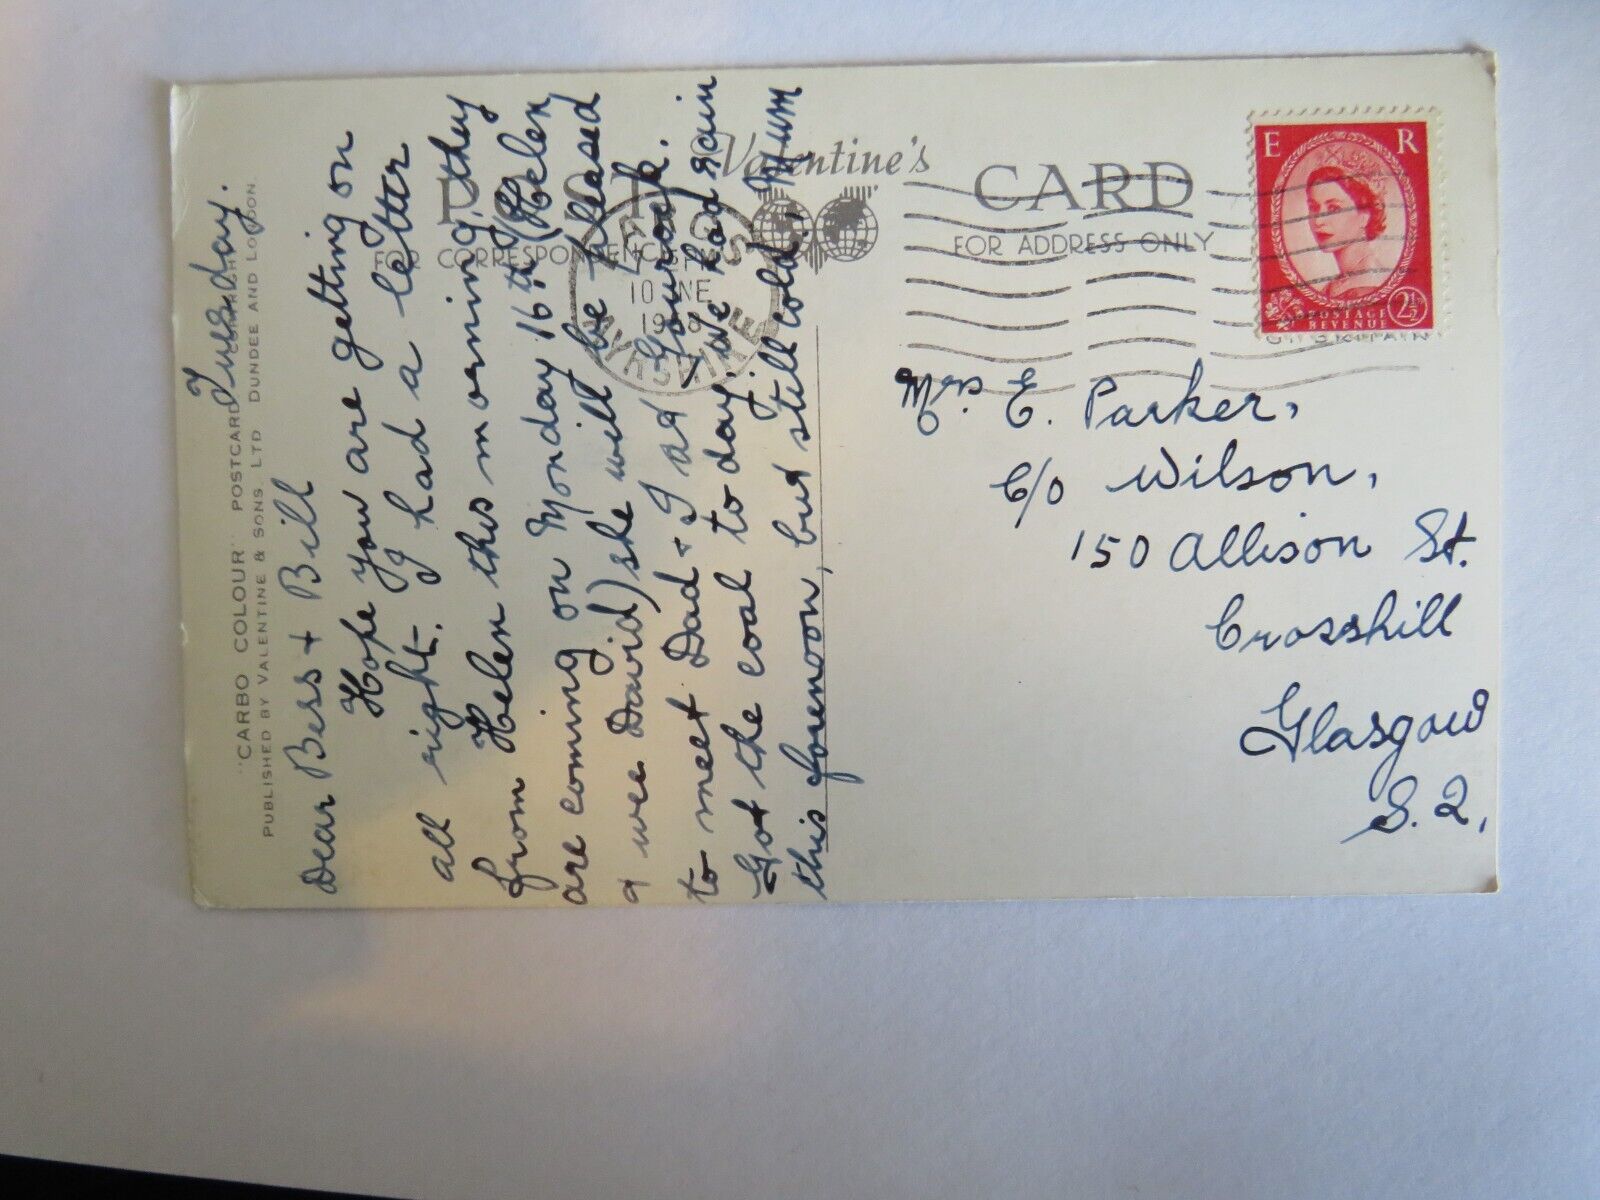 Tuesday.
Dear Bess + Bill
Hope you are getting on
all right. I had a letter
from Helen this morning, they
are coming on Monday 16th (Helen
& wee David) she will be pleased
to meet Dad & I at Gourock.
Got the coal to day, we had rain
this forenoon, but still cold. Mum
"CARBO COLOUR" POSTCARD
PUBLISHED BY VALENTINE & SONS LTD DUNDEE AND LONDON.
Valentine's
POST CARD
FOR CORRESPONDENCE
FOR ADDRESS ONLY
10 JNE
AYRSHIRE
E R
POSTAGE
REVENUE
2½
GT. BRITAIN
Mrs. E. Parker,
C/o Wilson,
150 Allison St.
Crosshill
Glasgow
S.2,